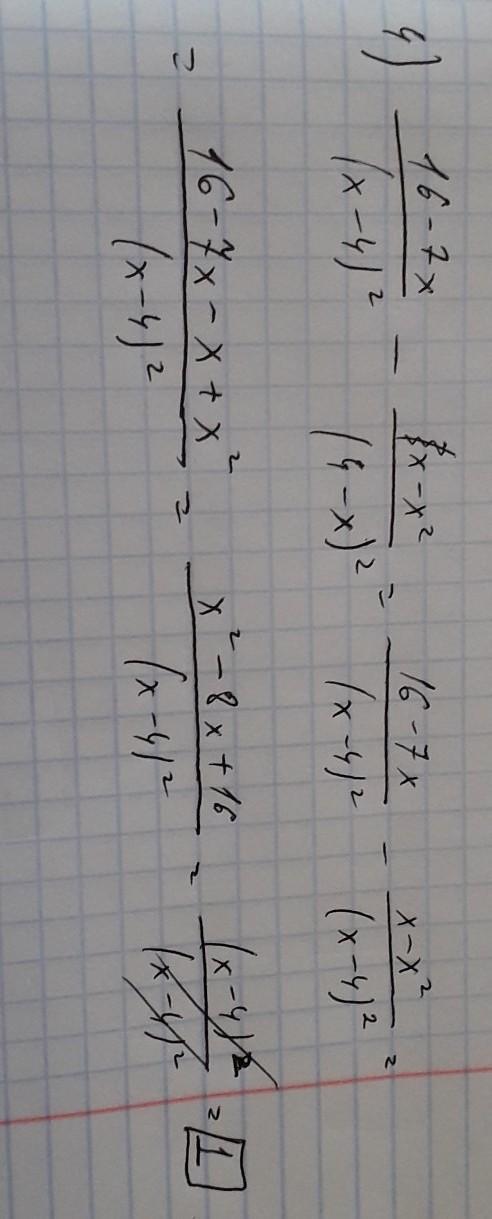 4) (16-7x)/(x-4)² - (x-x²)/(4-x)² = (16-7x)/(x-4)² - (x-x²)/(x-4)² =
= (16-7x-x+x²)/(x-4)² = (x²-8x+16)/(x-4)² = (x-4)²/(x-4)² = 1